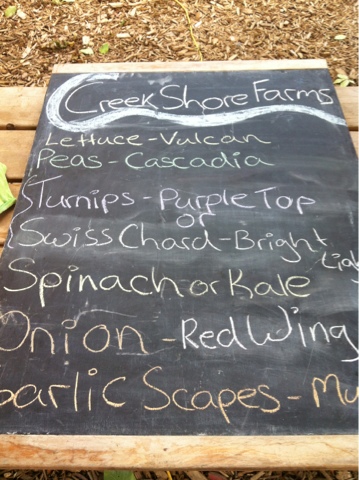 Creek Shore Farms
Lettuce - Vulcan
Peas - Cascadia
Turnips - Purple Top
or
Swiss Chard - Bright
Spinach or Kale
Onion - Red Wing
Garlic Scapes -